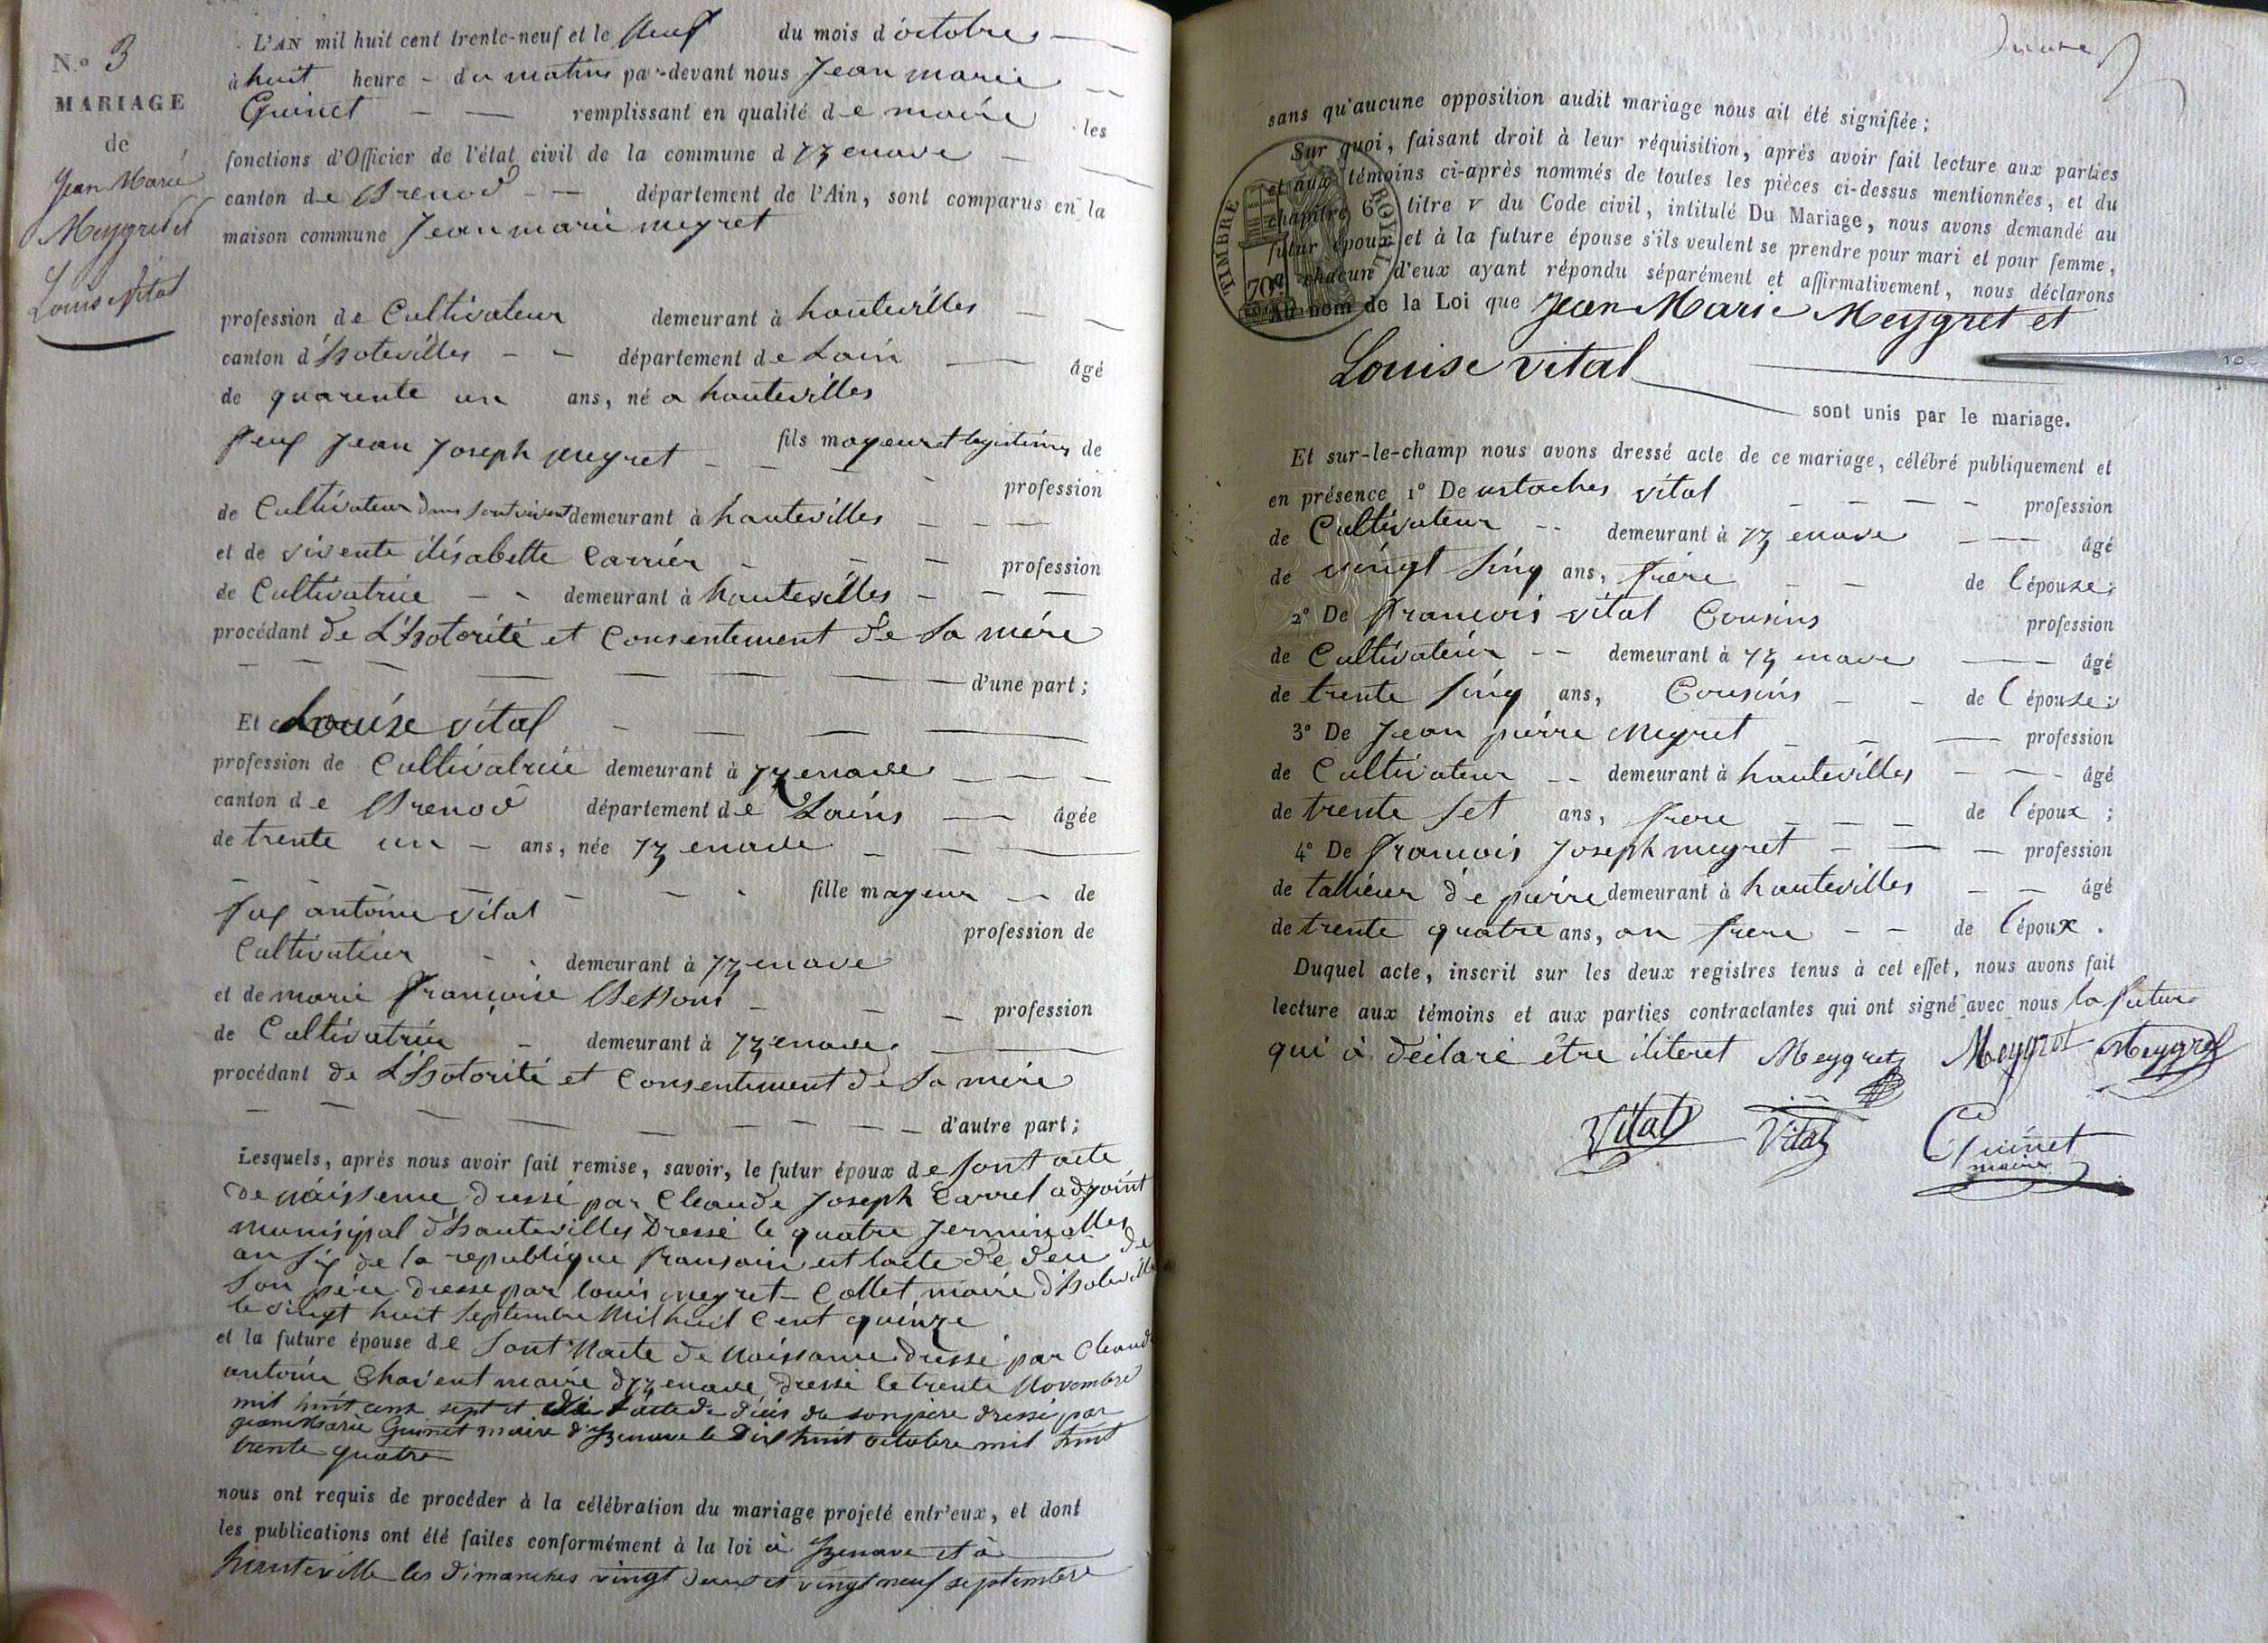 N.º 3
MARIAGE
de
Jean Marie
Meygret et
Louise Vital
L'AN mil huit cent trente-neuf et le neuf du mois d'octobre
à huit heure du matins par-devant nous Jean marie
Guinet remplissant en qualité de maire les
fonctions d'Officier de l'état civil de la commune d'yzenave
canton de Brenod département de l'Ain, sont comparus en la
maison commune Jean marie meyret
profession de Cultivateur demeurant à hautevilles
canton d'hotevilles département de Lain âgé
de quarente un ans, né a hautevilles
fils mayeur et legitimes de
feux Jean Joseph meyret profession
de Cultivateur dans sont vivent demeurant à hautevilles
et de vivente élisabette Carrier profession
de Cultivatrice demeurant à hautevilles
procédant de L'hotorité et Consentement de sa mére
d'une part ;
Et Louise vital
profession de Cultivatrice demeurant à yzenave
canton de Brenod département de Lains âgée
de trente un ans, née yzenave
fille mayeur de
fux antoine vital profession de
Cultivateur demeurant à yzenave
et de marie françoise profession
de Cultivatrice demeurant à yzenave
procédant de L'hotorité et Consentement de sa mére
d'autre part ;
Lesquels, après nous avoir fait remise, savoir, le futur époux de sont acte
de naissense dressé par Claude Joseph Carrel adjoint
munisipal d'hautevilles Dressé le quatre Jerminalles
an six de la republique fransaise et lacte de deié de
son père dresse par louis meyret-Collet maire d'hoteville
le vingt huit septembre mil huit Cent quinze
et la future épouse de sont Nacte de Naissance dressé par Claude
antoine Chaivent maire d'yzenave dressé le trente Novembre
mil huit cent sept et l'acte de décès de son père dressé par
jean Marie Guinet maire d'Izenave le Dix huit octobre mil huit
trente quatre
nous ont requis de procéder à la célébration du mariage projeté entr'eux, et dont
les publications ont été faites conformément à la loi à Izenave et à
hauteville les dimanches vingt deux et vingt neuf septembre
sans qu'aucune opposition audit mariage nous ait été signifiée ;
Sur quoi, faisant droit à leur réquisition, après avoir fait lecture aux parties
et aux témoins ci-après nommés de toutes les pièces ci-dessus mentionnées, et du
chapitre 6 titre v du Code civil, intitulé Du Mariage, nous avons demandé au
futur époux et à la future épouse s'ils veulent se prendre pour mari et pour femme,
et chacun d'eux ayant répondu séparément et affirmativement, nous déclarons
Au nom de la Loi que Jean Marie Meygret et
Louise vital
sont unis par le mariage.
TIMBRE ROYAL
70
Et sur-le-champ nous avons dressé acte de ce mariage, célébré publiquement et
en présence 1º De ustaches vital profession
de Cultivateur demeurant à yzenave âgé
de vingt sinq ans, frère de l'épouse ;
2º De francois vital Cousins profession
de Cultivateur demeurant à yzenave âgé
de trente sinq ans, Cousins de l'épouse ;
3º De Jean pierre meyret profession
de Cultivateur demeurant à hautevilles âgé
de trente set ans, frere de l'époux ;
4º De francois Joseph meyret profession
de tallieur de pierre demeurant à hautevilles âgé
de trente quatre ans, an frere de l'époux .
Duquel acte, inscrit sur les deux registres tenus à cet effet, nous avons fait
lecture aux témoins et aux parties contractantes qui ont signé avec nous la future
qui à déclaré être iliteret Meygret Meygret Meygret
Vital Vital Guinet
maire
10